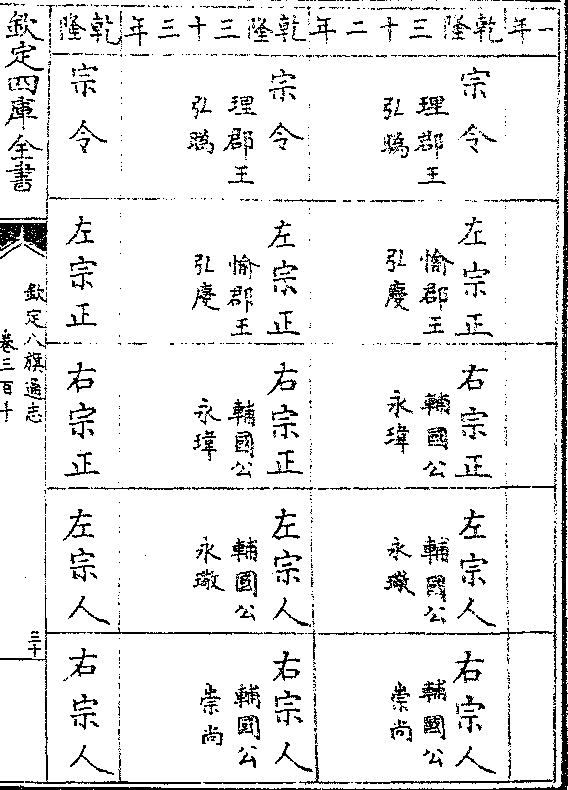 一年
乾隆三十二年
宗令
理郡王
弘㬙
左宗正
愉郡王
弘慶
右宗正
輔國公
永瑋
左宗人
輔國公
永璥
右宗人
輔國公
崇尚
乾隆三十三年
宗令
理郡王
弘㬙
左宗正
愉郡王
弘慶
右宗正
輔國公
永瑋
左宗人
輔國公
永璥
右宗人
輔國公
崇尚
乾隆
宗令
左宗正
右宗正
左宗人
右宗人
欽定四庫全書
欽定八旗通志
卷三百十
三十